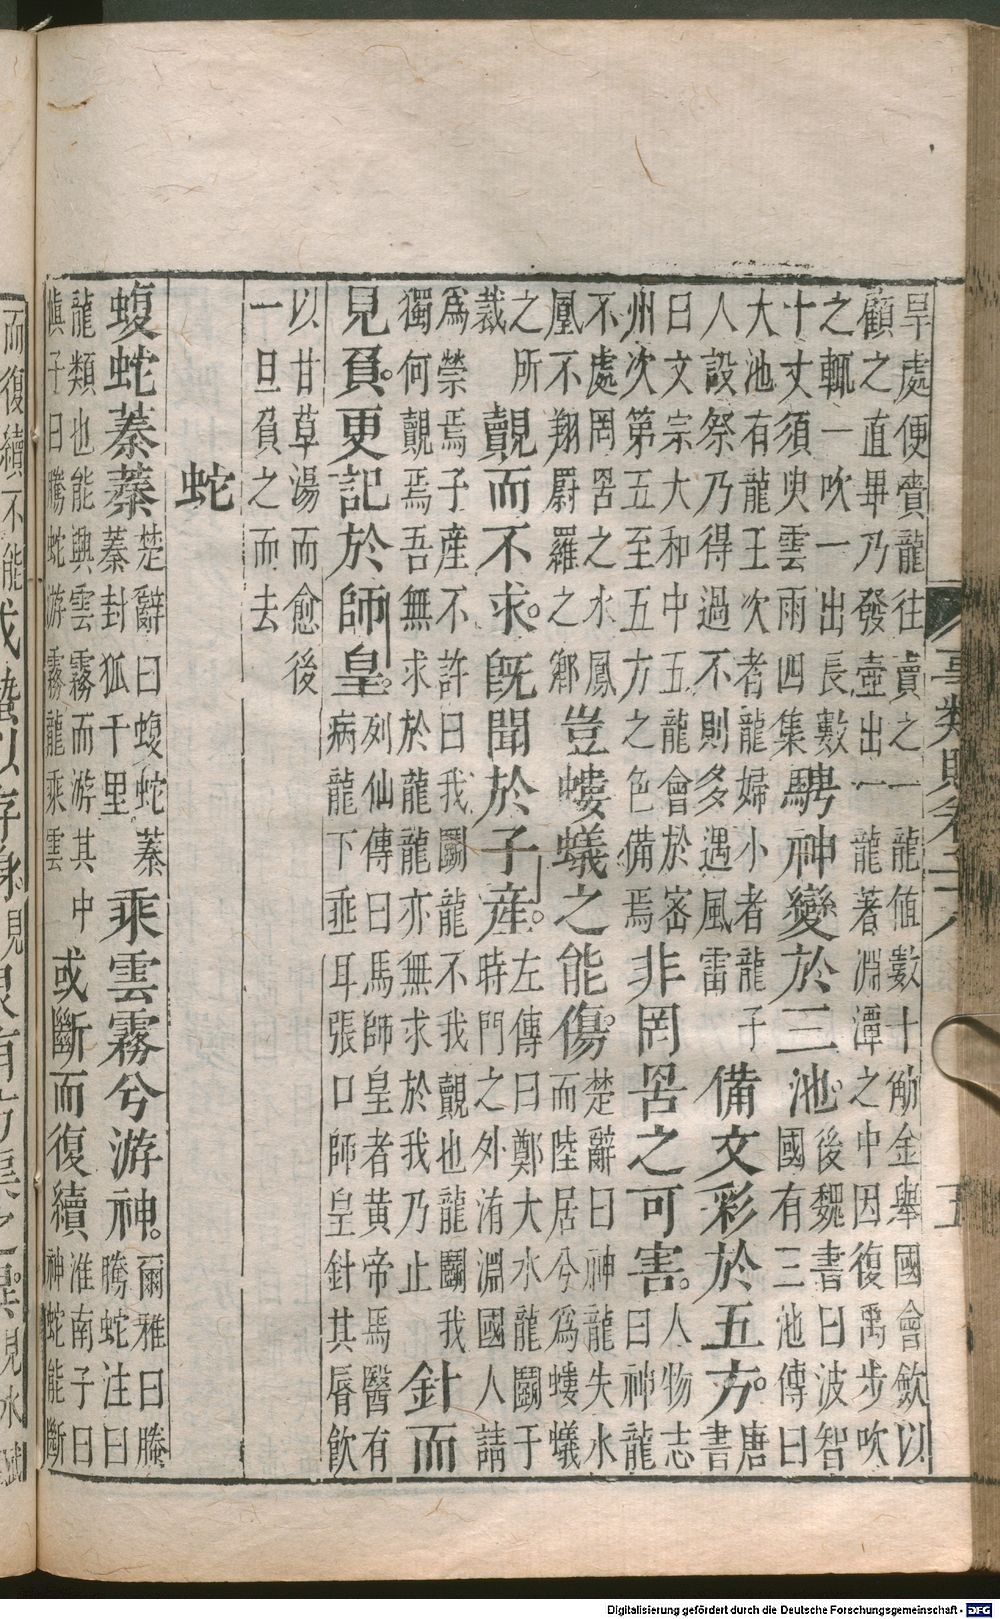 事類賦卷二十八
五
旱處便賫龍往賣之一龍值數十觔金舉國會斂以
顧之直畢乃發壺出一龍著淵潭之中因復禹步吹
之輒一吹一出長數
十丈須臾雲雨四集
騁神變於三池。
後魏書曰波智
國有三池傳曰
大池有龍王次者龍婦小者龍子
人設祭乃得過不則多遇風雷
備文彩於五方。
唐
書
曰文宗大和中五龍會於密
州次第五至五方之色備焉
非罔罟之可害。
人物志
曰神龍
不處罔罟之水鳳
凰不翔罻羅之鄉
豈螻蟻之能傷。
楚辭曰神龍失水
而陸居兮為螻蟻
之所
裁
覿而不求。既聞於子產。
左傳曰鄭大水龍鬭于
時門之外洧淵國人請
為禜焉子產不許曰我鬭龍不我覿也龍鬭我
獨何覿焉吾無求於龍龍亦無求於我乃止
針而
見負。更記於師皇。
列仙傳曰馬師皇者黃帝馬醫有
病龍下垂耳張口師皇針其脣飲
以甘草湯而愈後
一旦負之而去
蛇
蝮蛇蓁蓁
楚辭曰蝮蛇蓁
蓁封狐千里
乘雲霧兮游神。
爾雅曰螣
騰蛇注曰
龍類也能興雲霧而游其中
慎子曰騰蛇游霧龍乘雲
或斷而復續
淮南子曰
神蛇能斷
而復續不能
Digitalisierung gefördert durch die Deutsche Forschungsgemeinschaft - DFG